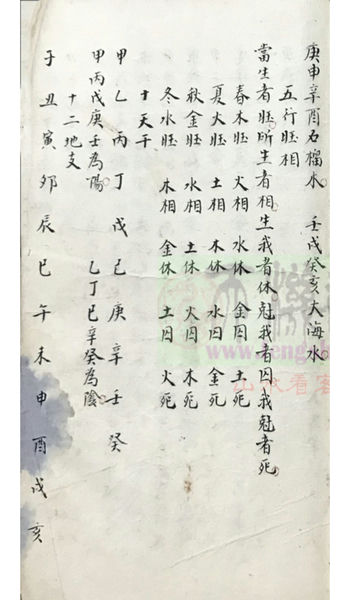 庚申辛酉石榴水 壬戌癸亥大海水
五行旺相
當生者旺所生者相生我者休尅我者囚我尅者死
春木旺 火相 水休 金囚 土死
夏火旺 土相 木休 水囚 金死
秋金旺 水相 土休 火囚 木死
冬水旺 木相 金休 土囚 火死
十天干
甲 乙 丙 丁 戊 己 庚 辛 壬 癸
甲丙戊庚壬為陽 乙丁己辛癸為陰
十二地支
子 丑 寅 卯 辰 巳 午 未 申 酉 戌 亥